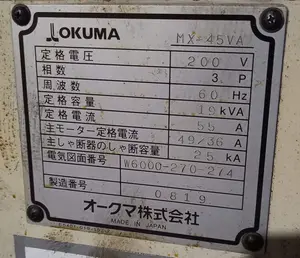 OKUMA MX-45VA
定格電圧 200 V
相数 3 P
周波数 60 Hz
定格容量 19 kVA
定格電流 55 A
主モーター定格電流 49/36 A
主しゃ断器のしゃ断容量 25 kA
電気図面番号 W6000-270-274
製造番号 0819
オークマ株式会社
MADE IN JAPAN